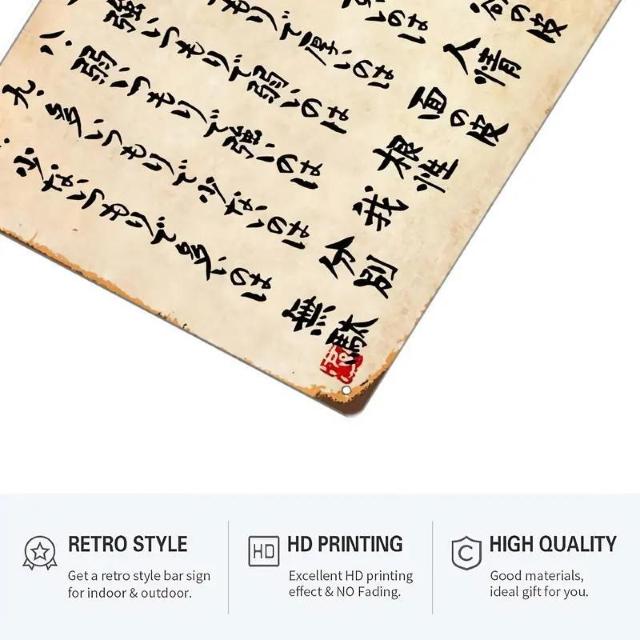 欲の皮
いのは 人情
もりで厚いのは 面の皮
強いつもりで弱いのは 根性
八、弱いつもりで強いのは 我
九、多いつもりで少ないのは 分別
少ないつもりで多いのは 無駄
RETRO STYLE
Get a retro style bar sign
for indoor & outdoor.
HD
HD PRINTING
Excellent HD printing
effect & NO Fading.
C
HIGH QUALITY
Good materials,
ideal gift for you.